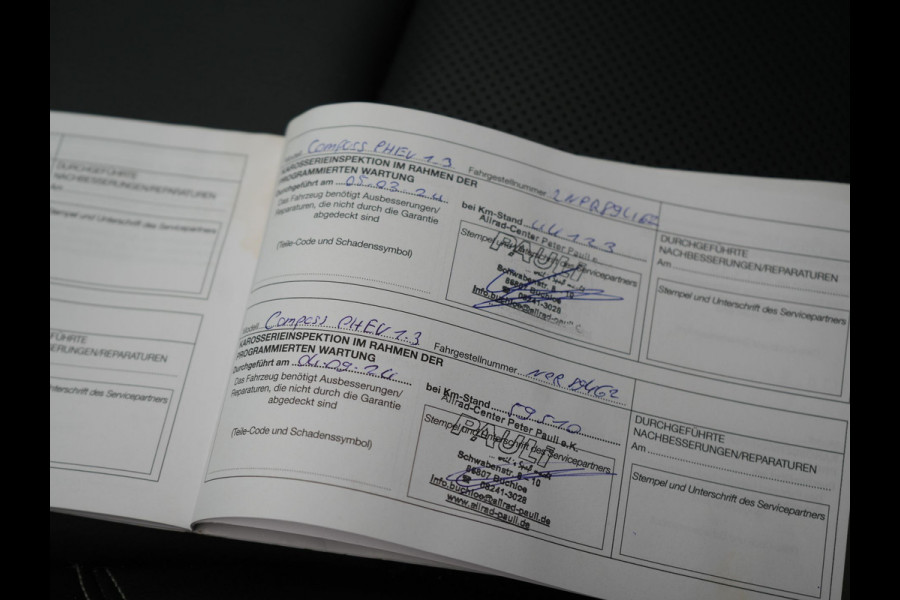 DURCHGEFÜHRTE
NACHBESSERUNGEN/REPARATUREN
Am
Stempel und Unterschrift des Servicepartners
FÜHRTE
SERUNGEN/REPARATUREN
nterschrift des Servicepartners
Modell Compass PHEV 1.3 Fahrgestellnummer
KAROSSERIEINSPEKTION IM RAHMEN DER
PROGRAMMIERTEN WARTUNG
Durchgeführt am 05.03.24 bei Km-Stand 44123
Das Fahrzeug benötigt Ausbesserungen/
Reparaturen, die nicht durch die Garantie
abgedeckt sind
(Teile-Code und Schadenssymbol)
Allrad-Center Peter Pauli e.
Stempel und Unterschrift des Servicepartners
PAULI
Schwabenstr.
86807 Buchloe
08241-3028
Info.buchloe@allrad-pauli
DURCHGEFÜHRTE
NACHBESSERUNGEN/REPARATUREN
Am
Stempel und Unterschrift des Servicepartners
Modell Compass PHEV 1.3 Fahrgestellnummer
KAROSSERIEINSPEKTION IM RAHMEN DER
PROGRAMMIERTEN WARTUNG
Durchgeführt am 04.09.24 bei Km-Stand 59510
Das Fahrzeug benötigt Ausbesserungen/
Reparaturen, die nicht durch die Garantie
abgedeckt sind
(Teile-Code und Schadenssymbol)
Allrad-Center Peter Pauli e.K.
Stempel und Unterschrift des Servicepartners
PAULI
Schwabenstr. 10
86807 Buchloe
08241-3028
Info.buchloe@allrad-pauli.de
www.allrad-pauli.de
DURCHGEFÜHRTE
NACHBESSERUNGEN/REPARATUREN
Am
Stempel und Unterschrift des Servicepartners